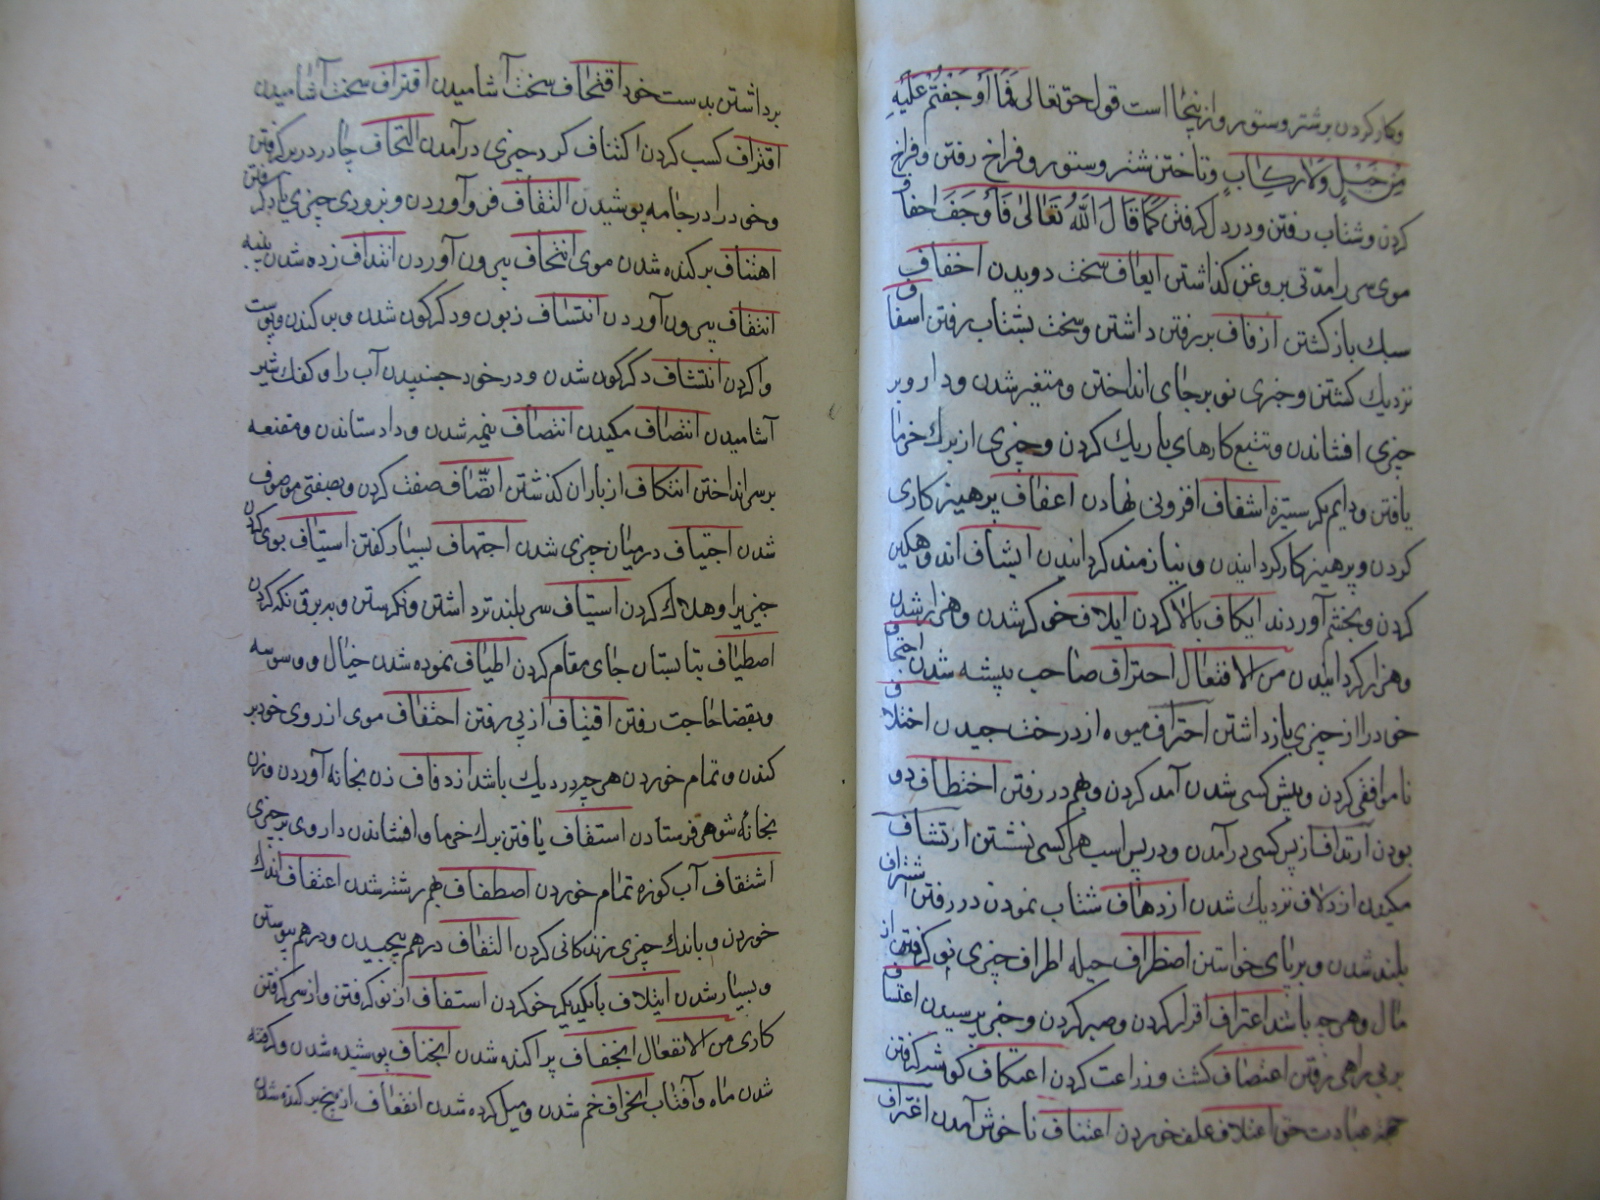 وکار کردن بر شتر و ستور و ازینجا است قول حق تعالی فَمَا أَوْجَفْتُمْ عَلَيْهِ
مِنْ خَيْلٍ وَلَا رِكَابٍ وتاختن شتر و ستور و فراخ رفتن و فراخ
کردن و شتاب رفتن و در دل گرفتن کَمَا قَالَ اللَّهُ تَعَالَى فَأَوْجَفَ احفاف
موی سر را مدّتی بی روغن گذاشتن ایغاف سخت دویدن اخفاف
سبک بازگشتن ازفاف بر رفتن داشتن و سخت بشتاب رفتن اسفاف
نزدیک گشتن و چیزی نو بر جای انداختن و متغیر شدن و دارو بر
چیزی افشاندن و تتبع کارهای باریک کردن و چیزی از برک خرما
یافتن و دایم نکرستیزه اشفاف افزونی نهادن اعفاف پرهیز کاری
کردن و پرهیزکار گردانیدن و نیازمند گردانیدن ایشاف اندوهگین
کردن و بخشم آوردند ایکاف بالا کردن ایلاف خوگر شدن و هزار شدن
و هزار گردانیدن من الافتعال احتراف صاحب پیشه شدن اجتحاف
خود را از چیزی باز داشتن اختراف میوه از درخت چیدن اختلاف
ناموافقی کردن و پیش کسی شدن آمد کردن و هم در رفتن اختطاف دو
بودن ارتداف از پس کسی درآمدن و در پس اسب هر کسی نشستن ارتشاف
مکیدن ازدلاف نزدیک شدن ازدهاف شتاب نمودن در رفتن اشتراف
بلند شدن و برپای خواستن اضطراف حیله اطراف چیزی نو گرفتن از
مال و هر چه باشد اعتراف اقرار کردن و صبر کردن و خبر پرسیدن اعتساف
بر بی راهی رفتن اعتصاف کشت و زراعت کردن اعتکاف گوشه گرفتن
جهة عبادت حق اعتلاف علف خوردن اعتناف ناخوش آمدن اغتراف
برداشتن بدست خود اقتحاف سخت آشامیدن اقتراف سخت آشامیدن
اقتراف کسب کردن اکتناف کرد چیزی درآمدن التحاف چادر در بر گرفتن
و خود را در جامه پوشیدن التقاف فرو آوردن و بزودی چیزی یاد گرفتن
اهتناف برکنده شدن موی انتحاف بیرون آوردن انتداف زده شدن پنبه
انتقاف بیرون آوردن انتساف زبون و دگرگون شدن و برکندن و پوست
وا کردن انتشاف دگرگون شدن و در خود جنبیدن آب را و کفک شیر
آشامیدن انتضاف مکیدن انتصاف نیمه شدن و داد ستاندن و مقنعه
بر سر انداختن انتکاف از باران گذشتن اتّصاف صفت کردن و بصفتی موصوف
شدن اجتیاف در میان چیزی شدن اجتهاف بسیار گفتن استیاف بوی کردن
چیزیرا و هلاک کردن استیاف سر بلند تر داشتن و نگرستن و به برق نگه کردن
اصطیاف بتابستان جای مقام کردن اطیاف نموده شدن خیال و وسوسه
و بقضا حاجت رفتن اقتیاف از پی رفتن احتفاف موی از روی خود بر
کندن و تمام خوردن هر چه در دیک باشد ازدفاف زن بخانه آوردن و زن
بخانه شوهر فرستادن استفاف یافتن برک خرما و افشاندن داروی بر چیزی
اشتفاف آب کوزه تمام خوردن اصطفاف هم رشته شدن اعتفاف اندک
خوردن و باندک چیزی زندگانی کردن التفاف درهم پیچیدن و درهم پیوستن
و بسیار شدن ایتلاف با یکدیگر خو کردن استیناف از نو گرفتن و از سر گرفتن
کاری من الانفعال انجفاف پراکنده شدن انجناف پوشیده شدن و گرفته
شدن ماه و آفتاب انحراف خم شدن و میل کرده شدن انقعاف از بیخ برکنده شدن